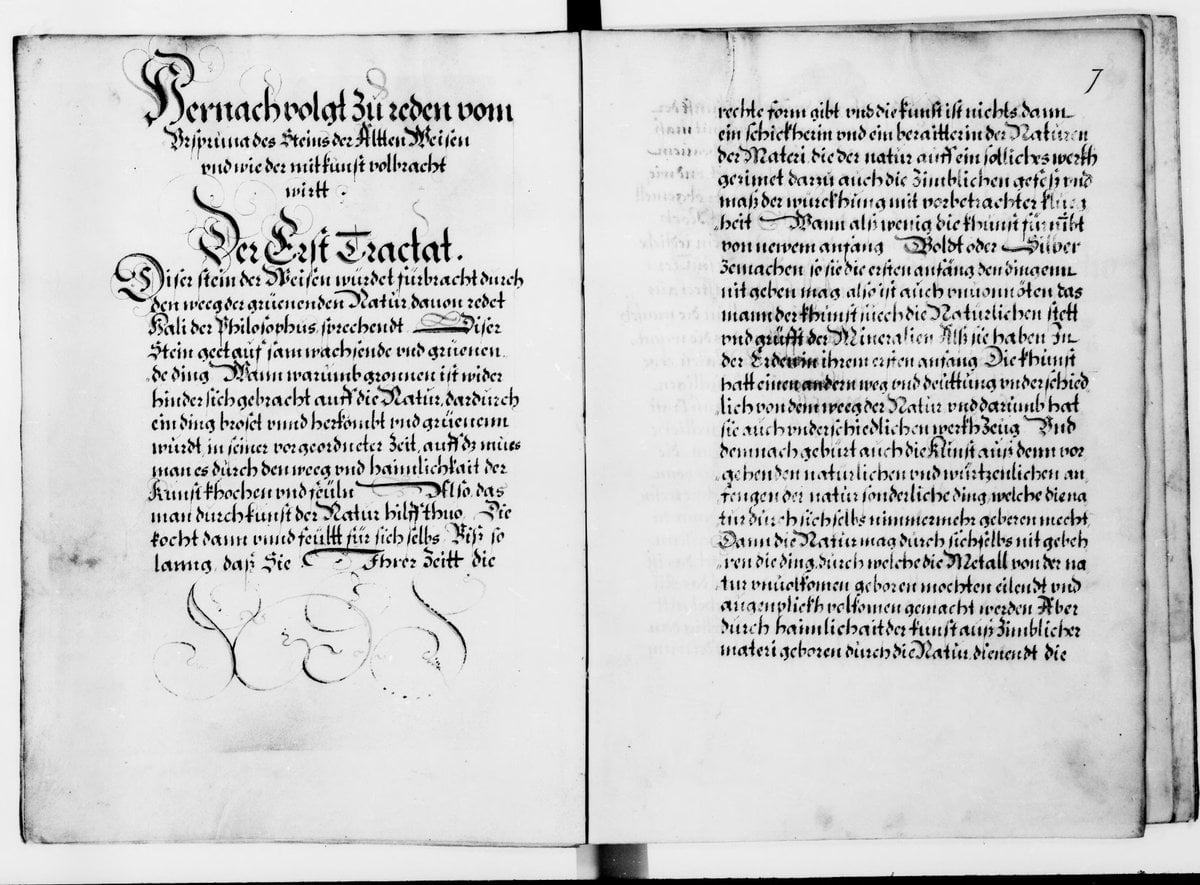 Hernach volgt Zu reden vom
Vrsprung des Steins der Altten Weisen
vnd wie der mit kunst volbracht
wirtt.
Der Erst Tractat.
Diser stein der Weisen würdet fürbracht durch
den weeg der grüenenden Natur, dauon redet
Hali der Philosophus, sprechendt, Diser
Stein geet auf jam wachsende vnd grüenen
de ding Wann warumb gronnen ist wider
hinder sich gebracht auff die Natur, dardurch
ein ding broset vnnd herkombt vnd grüenenn
würdt, in seiner vorgeordneter Zeit, auff dz mues
man es durch den weeg vnd haimlichkait der
Kunst khochen vnd feüln Also, das
man durch kunst der Natur hilff thuo, Die
kocht dann vnnd feültt für sich selbs, Biß so
lanng, daß Sie Ihrer Zeitt die
7
rechte form gibt vnd die kunst ist nichts dann
ein schickherin vnd ein beraitterin der Naturen
der Materi, die der natur auff ein solliches werkh
gerimet darzu auch die Zimblichen gefeß vnd
maß der würckhung mit vorbetrachter klueg
heit Wann alß wenig die khunst fürnimbt
von newem anfang Goldt oder Silber
Zemachen, so sie die ersten anfäng den dingenn
nit geben mag, also ist auch vnuonnöten das
mann der khunst suech die Natürlichen stett
vnd grüfft der Mineralien Alß sie haben In
der Erden in ihrem ersten anfang Die khunst
hatt einen andern weg vnd deüttung vnderschied
lich von dem weeg der Natur vnd darumb hat
sie auch vnderschiedlichen werkh Zeug Vnd
demnach gebürt auch die Kunst auß denn vor
gehenden naturlichen vnd würtzenlichen an
fengen der natur sonderliche ding, welche die na
tur durch sich selbs nimmermehr geberen mecht,
Dann die Natur mag durch sich selbs nit gebeh
ren die ding, durch welche die Metall von der na
tur vnuolkomen geboren mochten eilendt vnd
augenpliekh volkomen gemacht werden Aber
durch haimlichait der kunst auß Zimblicher
materi geboren durch die Natur, dienendt die